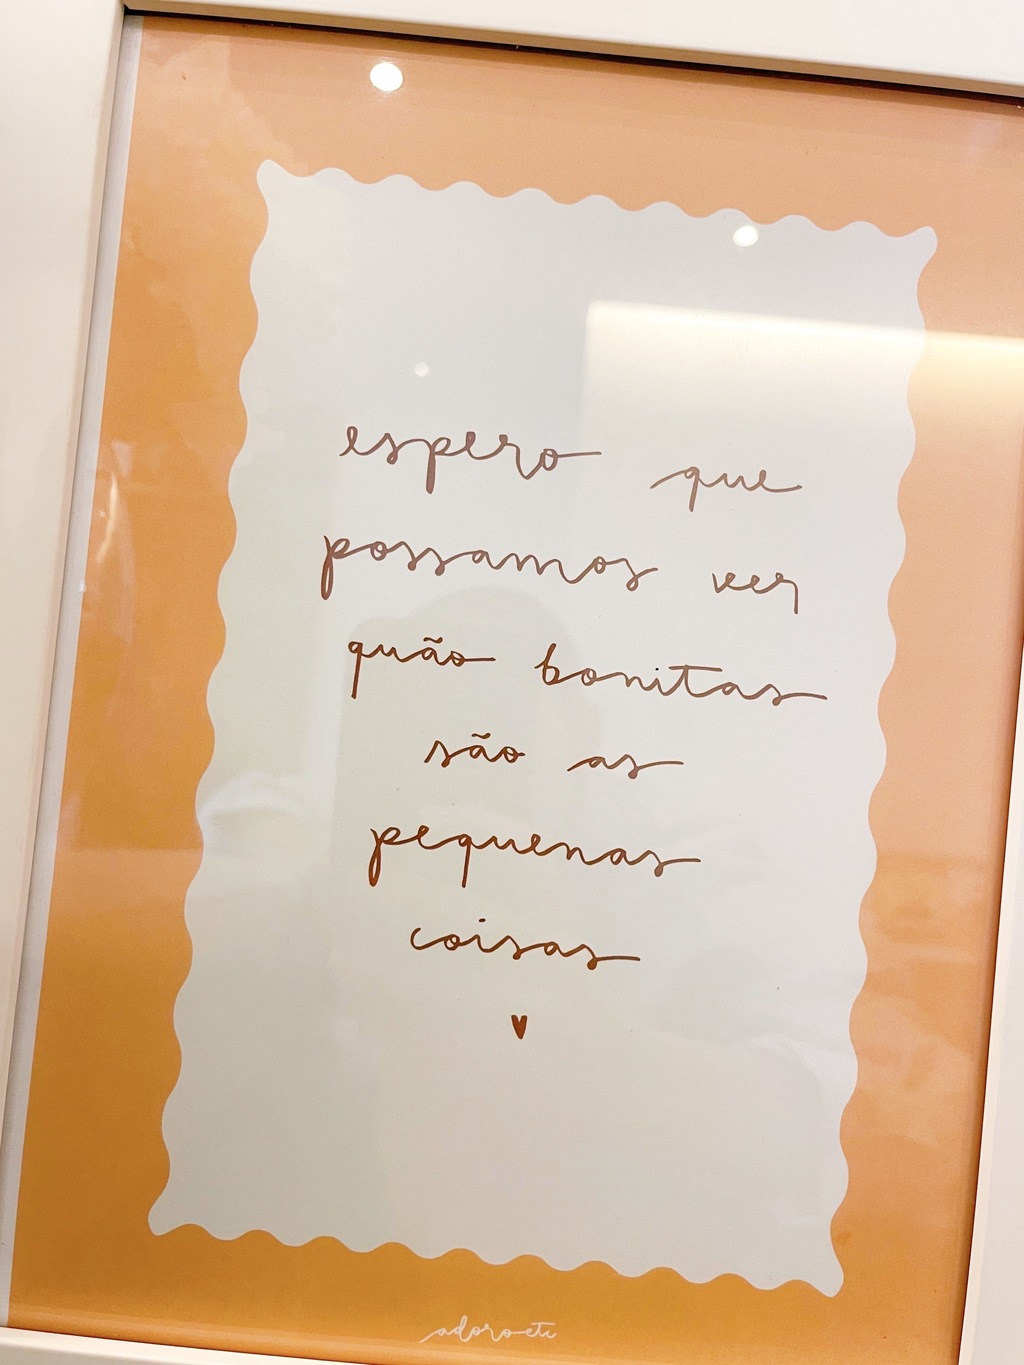 espero que
possamos ver
quão bonitas
são as
pequenas
coisas
adoroetc